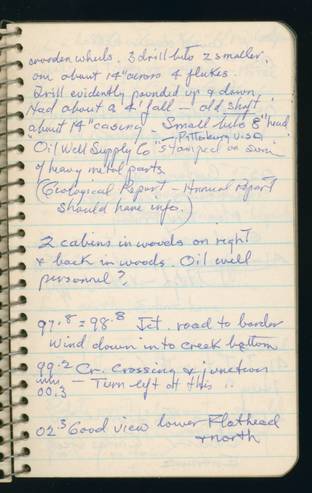 wooden wheels. 3 drill bits 2 smaller,
one about 14" across 4 flukes.
Drill evidently pounded up & down,
Had about a 4' fall — old shaft
about 14" casing. Small bits 8" head
Pittsburg U.S.A
Oil Well Supply Co "stamped on some
of heavy metal parts.
(Geological Report — Annual report
should have info.)
2 cabins in woods on right
& back in woods. Oil well
personnel?
97.8 = 98.8 Jct. road to border
Wind down into creek bottom
99.2 Cr. Crossing & junction
— Turn left at this
00.3
02.3 Good view lower Flathead
& north